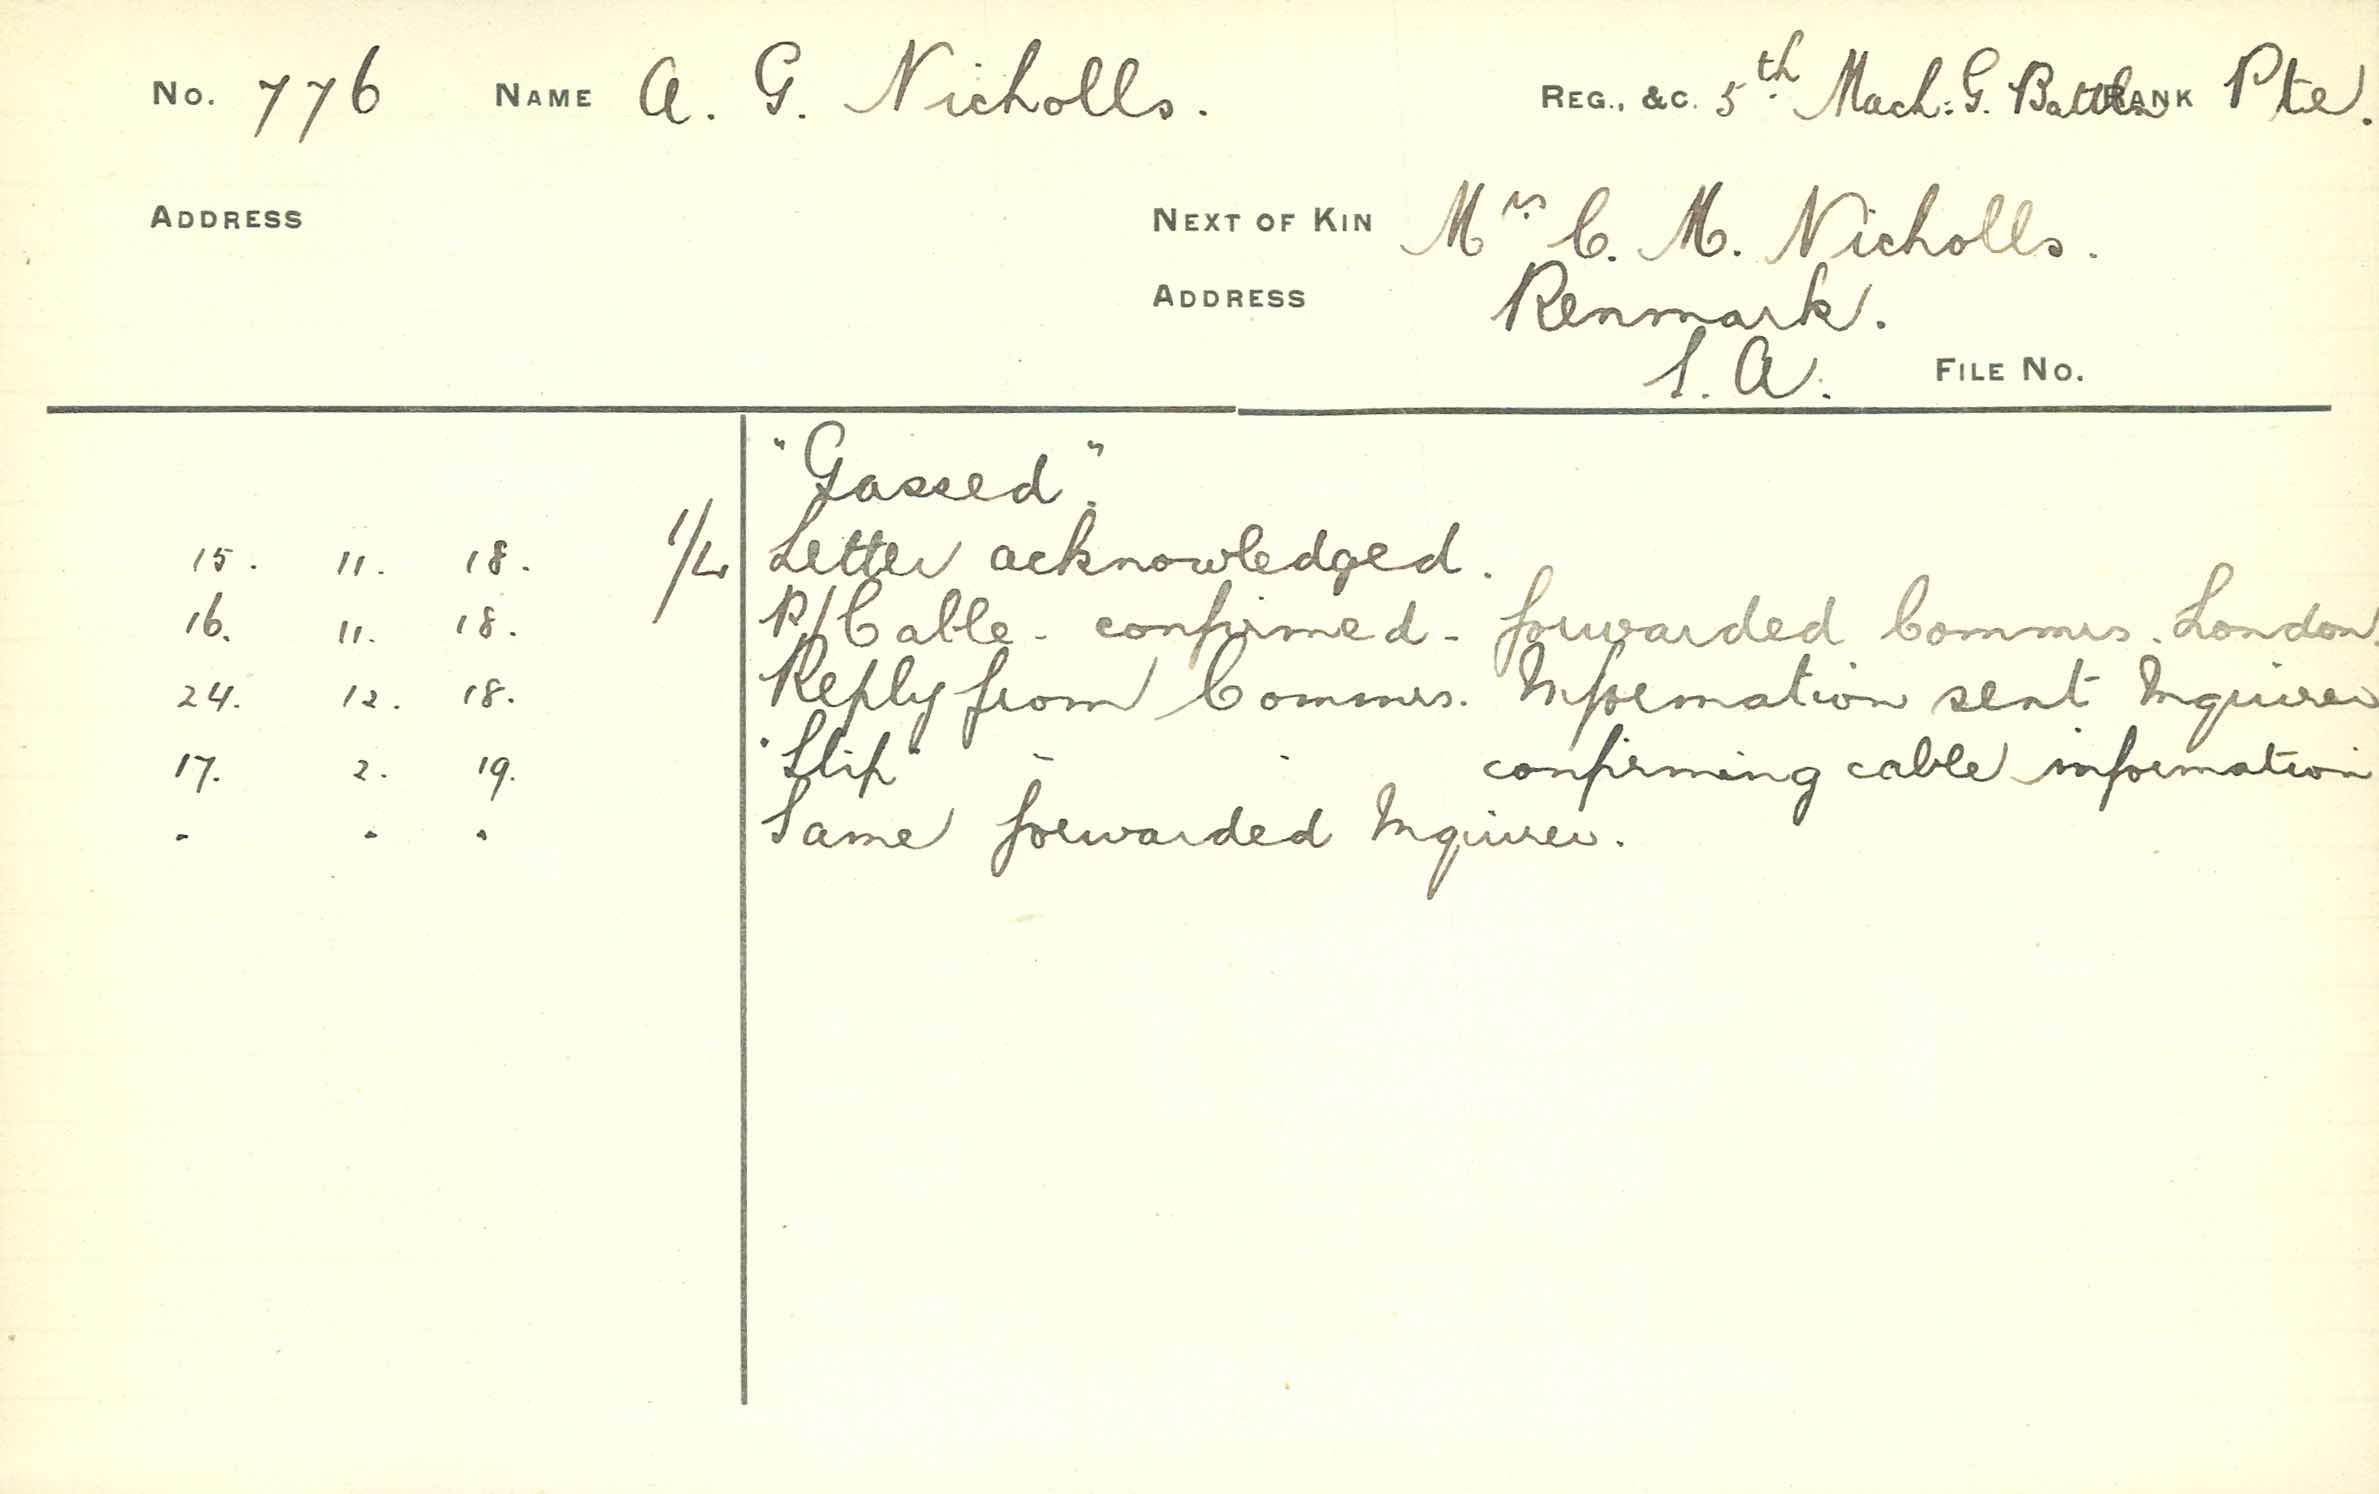 No. 776 NAME A. G. Nicholls. REG., &C. 5th Mach: G. Battln RANK Pte.
ADDRESS NEXT OF KIN Mrs C. M. Nicholls.
ADDRESS Renmark.
S. A. FILE No.
"Gassed".
15. 11. 18. 1/L Letter acknowledged.
16. 11. 18. R/Cable - confirmed - forwarded Commrs. London.
24. 12. 18. Reply from Commrs. Information sent Inquirer
17. 2. 19. "Slip" " " confirming cable information
" " " Same forwarded Inquirer.